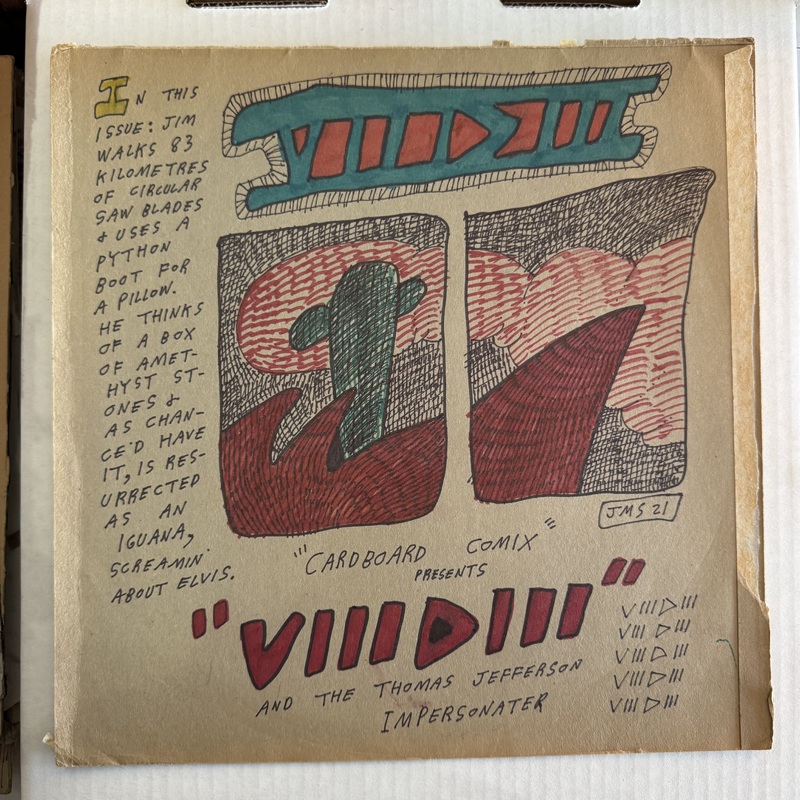 IN THIS
ISSUE: JIM
WALKS 83
KILOMETRES
OF CIRCULAR
SAW BLADES
& USES A
PYTHON
BOOT FOR
A PILLOW.
HE THINKS
OF A BOX
OF AMET-
HYST ST-
ONES &
AS CHAN-
CE'D HAVE
IT, IS RES-
URRECTED
AS AN
IGUANA,
SCREAMIN'
ABOUT ELVIS.
JMS 21
"'CARDBOARD COMIX'"
PRESENTS
"VIIIDIII"
AND THE THOMAS JEFFERSON
IMPERSONATER
VIIIDIII
VIIIDIII
VIIIDIII
VIIIDIII
VIIIDIII